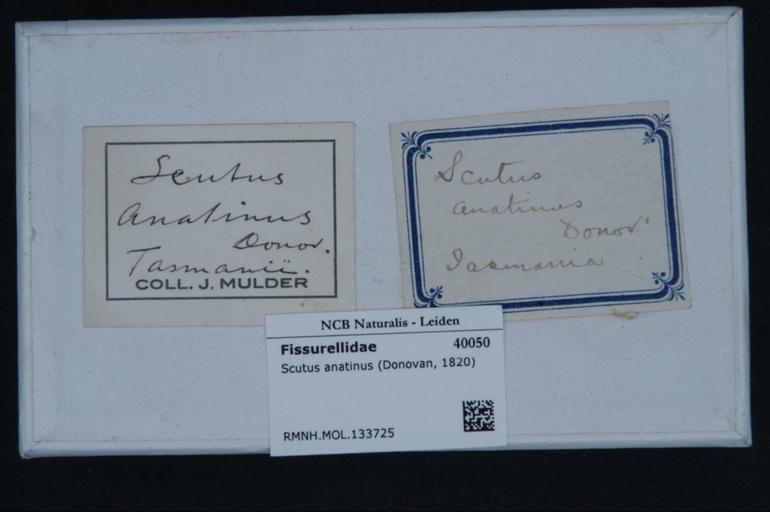 Scutus
Anatinus
Donov.
Tasmanië.
COLL. J. MULDER
Scutus
anatinus
Donov'
Tasmania
NCB Naturalis - Leiden
Fissurellidae 40050
Scutus anatinus (Donovan, 1820)
RMNH.MOL.133725